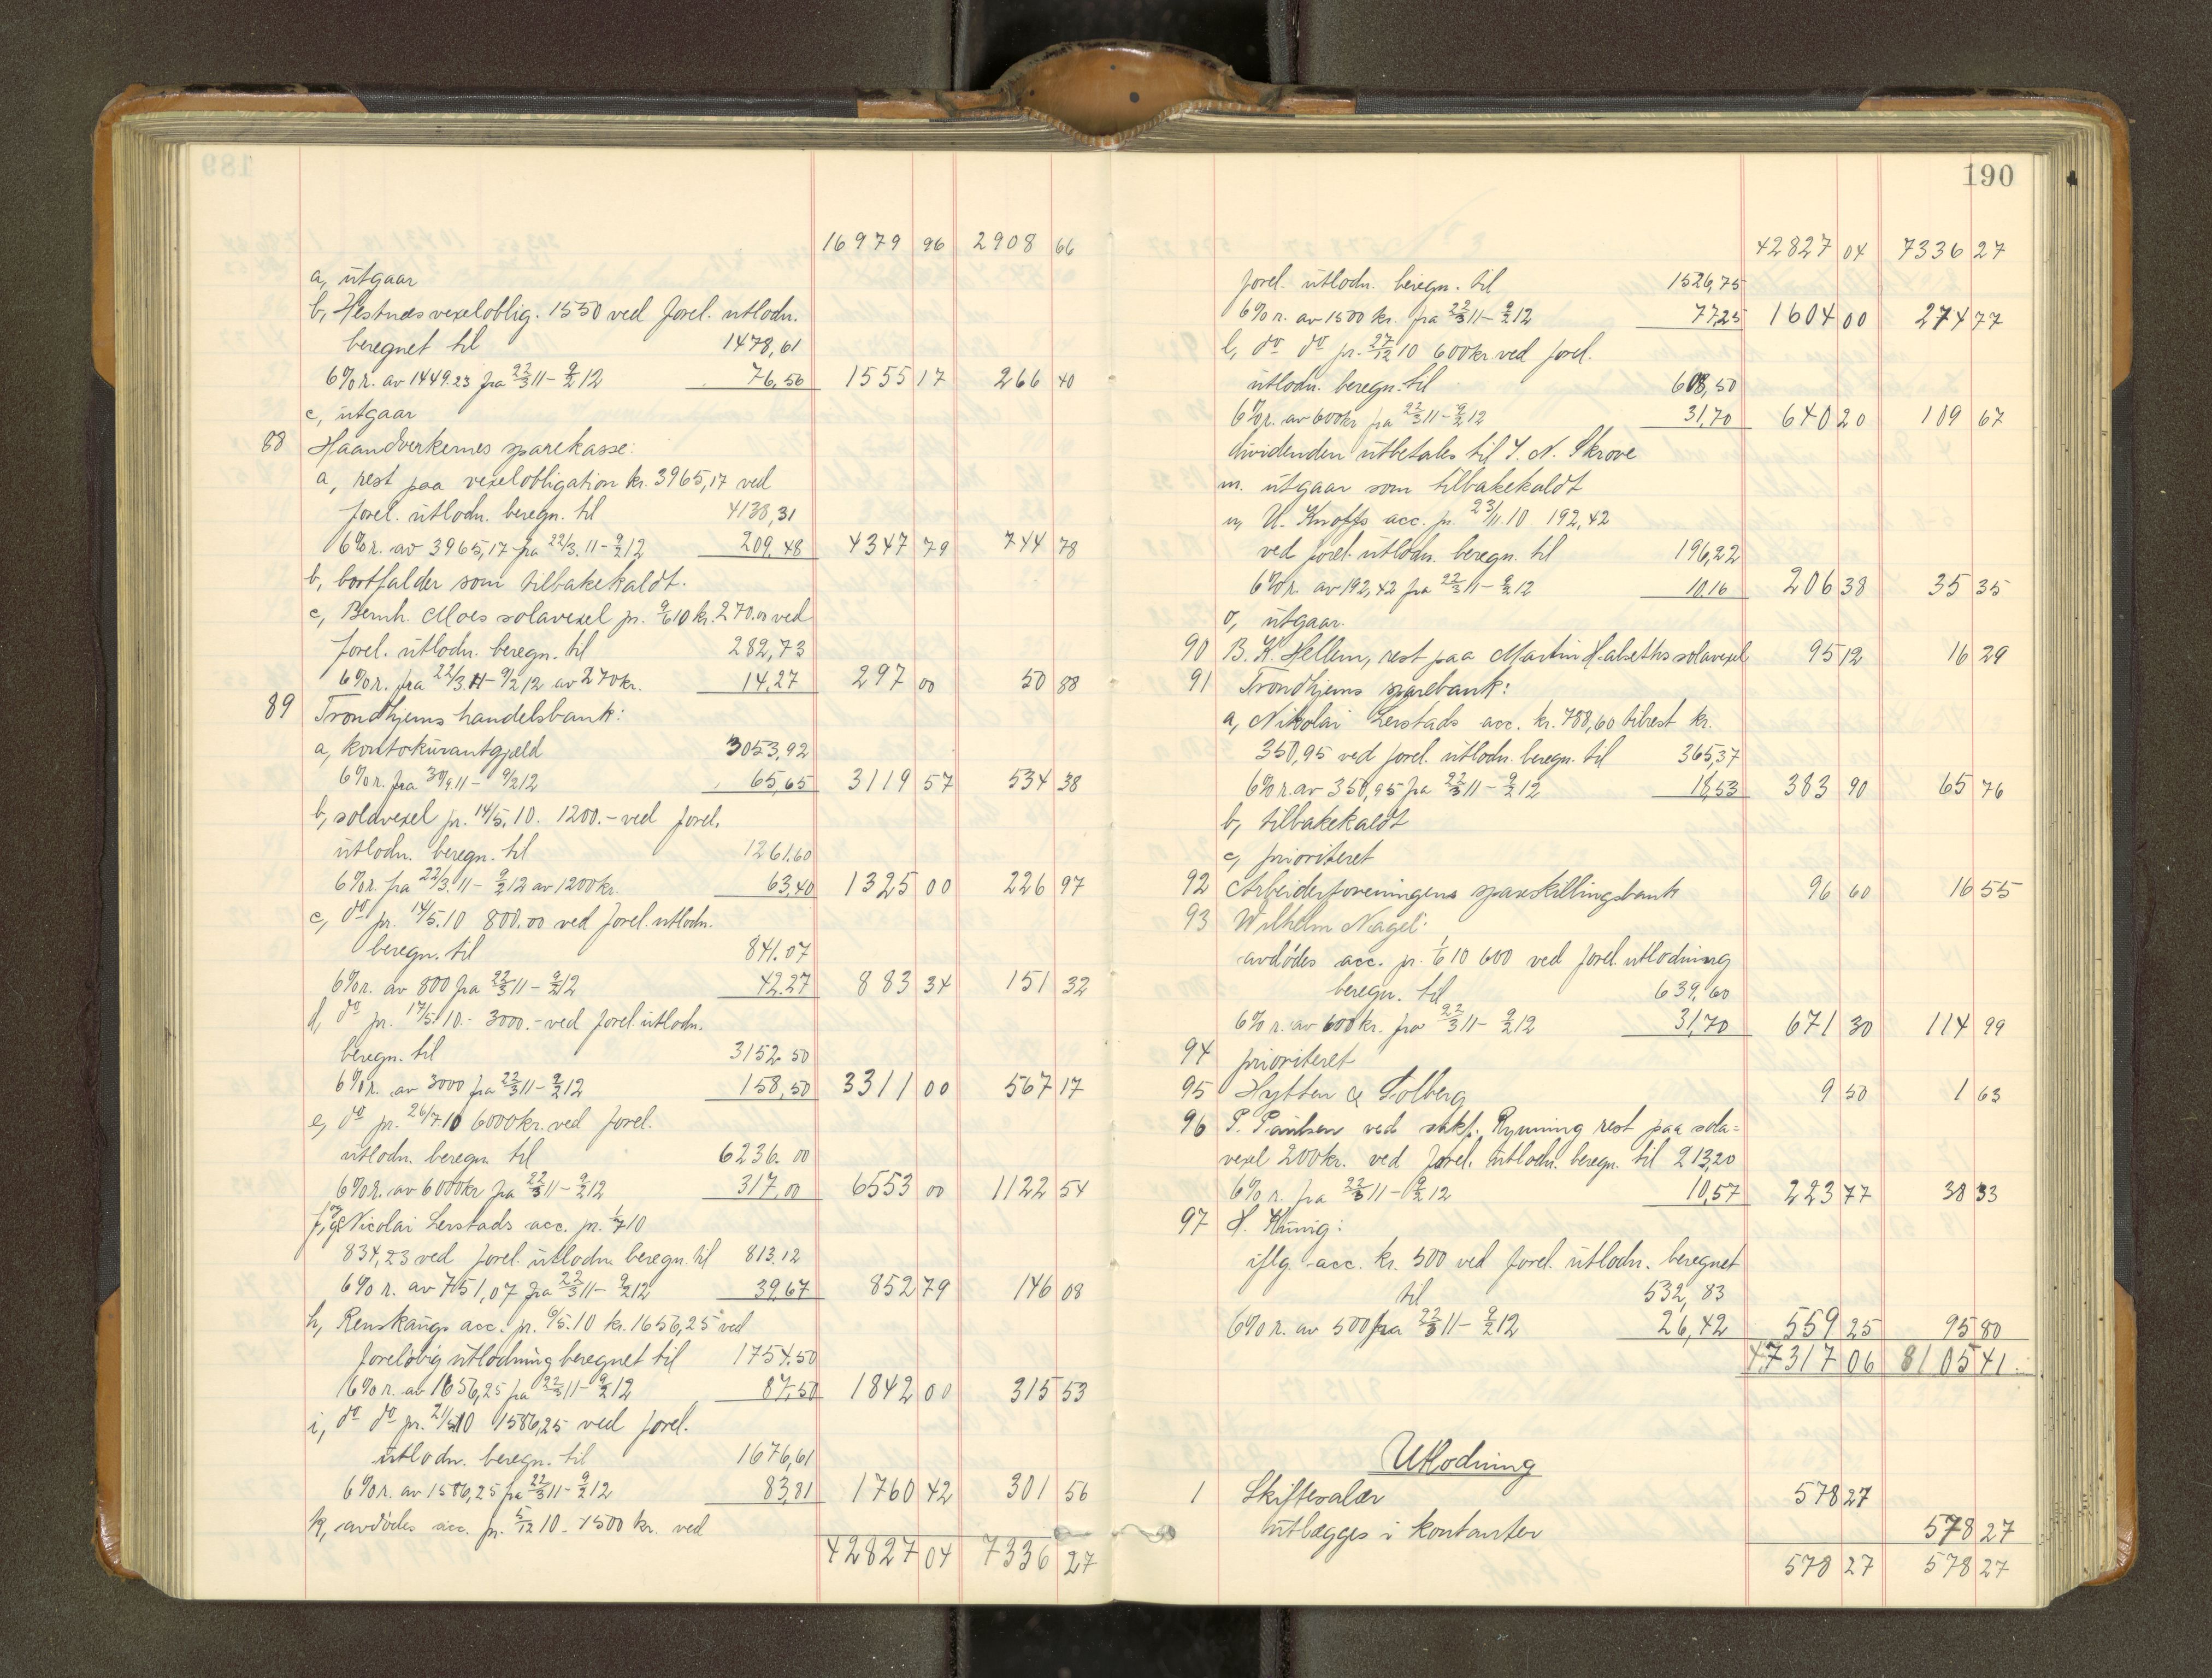 189
16979 96 2908 66
a, utgaar
b, Hestnæs vexeloblig. 1550 ved forel. utlodn.
beregnet til 1478,61
6% r. av 1449.23 fra 22/3 11 - 9/2 12 76,56 1555 17 266 40
c, utgaar
88 Haandverkernes sparekasse:
a, rest paa vexelobligation kr. 3965,17 ved
forel. utlodn. beregn. til 4138,31
6% r. av 3965,17 fra 22/3. 11 - 9/2 12 209,48 4347 79 744 78
b, bortfalder som tilbakekaldt.
c, Bernh. Moes solavexel pr. 9/6 10 kr. 270.00 ved
forel. utlodn. beregn. til 282,73
6% r. fra 22/3. 11 - 9/2 12 av 270 kr. 14.27 297 00 50 88
89 Trondhjems handelsbank:
a, kontokurantgjæld 3053,92
6% r. fra 30/9 11 - 9/2 12 65,65 3119 57 534 38
b, solavexel pr. 14/5. 10. 1200.- ved forel.
utlodn. beregn. til 1261.60
6% r. fra 22/3. 11 - 9/2 12 av 1200 kr. 63,40 1325 00 226 97
c, do pr. 14/5. 10 800.00 ved forel. utlodn.
beregn. til 841.07
6% r. av 800 fra 22/3 11 - 9/2 12 42.27 883 34 151 32
d, do pr. 17/5. 10. - 3000.- ved forel. utlodn.
beregn. til 3152.50
6% r. av 3000 fra 22/3 11 - 9/2 12 158,50 3311 00 567 17
e, do pr. 26/7 10 6000 kr. ved forel.
utlodn. beregn. til 6236.00
6% r. av 6000 kr fra 22/3 11 - 9/2 12 317,00 6553 00 1122 54
f, og g, Nicolai Lerstads acc. pr. 1/7 10
834,23 ved forel. utlodn. beregn. til 813.12
6% r. av 751,07 fra 22/3 11 - 9/2 12 39,67 852 79 146 08
h, Renskaugs acc. pr. 6/5. 10 kr. 1656,25 ved
foreløbig utlodning beregnet til 1754.50
6% r. av 1656,25 fra 22/3 11 - 9/2 12 87,50 1842 00 315 53
i, do do pr. 21/5 10 1586,25 ved forel.
utlodn. beregn. til 1676,61
6% r. av 1586,25 fra 22/3 11 - 9/2 12 83,81 1760 42 301 56
k, avdødes acc. pr. 5/12 10 - 1500 kr. ved
42827 04 7336 27
190
42827 04 7336 27
forel. utlodn. beregn. til 1526,75
6% r. av 1500 kr. fra 22/3 11 - 9/2 12 77,25 1604 00 274 77
l, do do pr. 27/12 10 600 kr ved forel.
utlodn. beregn. til 608,50
6% r. av 600 kr fra 22/3 11 - 9/2 12 31,70 640 20 109 67
dividenden utbetales til I. N. Skrove
m. utgaar som tilbakekaldt
n, U. Knoffs acc. pr. 23/11. 10 192,42
ved forel. utlodn. beregn. til 196,22
6% r. av 192,42 fra 22/3 11 - 9/2 12 10.16 206 38 35 35
o, utgaar.
90 B. K. Hellem, rest paa Martin Halseths solavexel 95 12 16 29
91 Trondhjems sparebank:
a, Nikolai Lerstads acc. kr. 788,60 tilrest kr.
350,95 ved forel. utlodn. beregn. til 365,37
6% r. av 350,95 fra 22/3 11 - 9/2 12 18,53 383 90 65 76
b, tilbakekaldt
c, prioriteret
92 Arbeiderforeningens spareskillingsbank 96 60 16 55
93 Wilhelm Nagel:
avdødes acc. pr. 1/6 10 600 ved forel. utlodning
beregn. til 639,60
6% r. av 600 kr. fra 22/3 11 - 9/2 12 31,70 671 30 114 99
94 prioriteret
95 Hytten & Solberg 9 50 1 63
96 P. Paulsen ved sakf. Rynning rest paa sola=
vexel 200 kr. ved forel. utlodn. beregn. til 213,20
6% r. fra 22/3 11 - 9/2 12 10,57 223 77 38 33
97 H. König:
iflg. acc. kr. 500 ved forel. utlodn. beregnet
til 532,83
6% r. av 500 fra 22/3 11 - 9/2 12 26,42 559 25 95 80
47317 06 8105 41
Utlodning
1 Skiftesalær 578 27
utlægges i kontanter 578 27
578 27 578 27